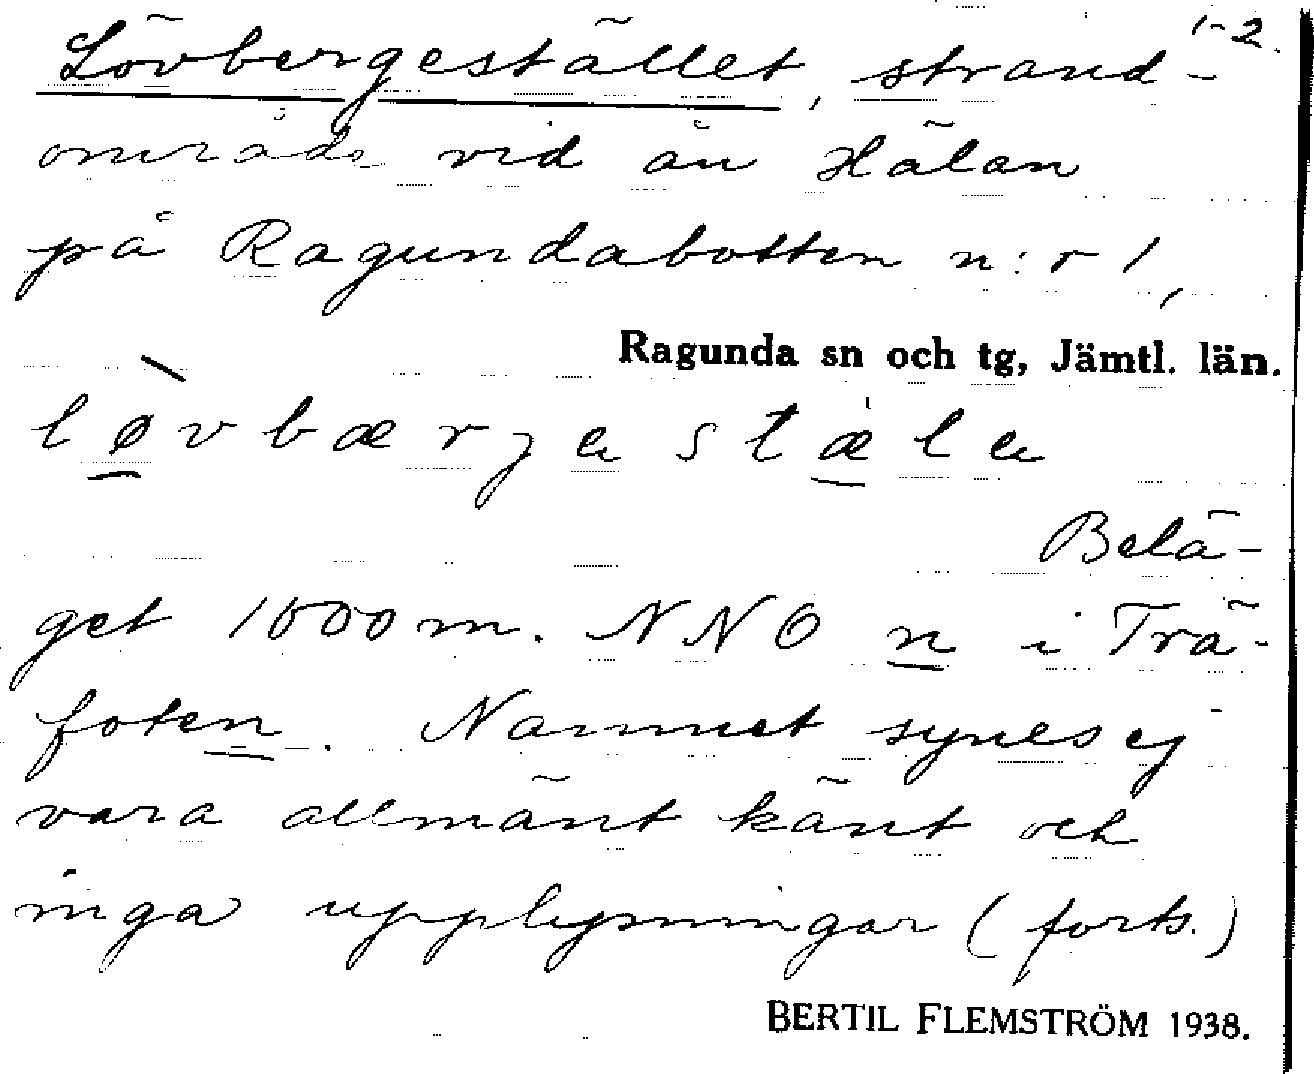 1-2.
Lövbergestället, strand-
område vid ån Hälan
på Ragundabotten n:r 1,
Ragunda sn och tg, Jämtl. län.
løvbærjestæle
Belä-
get 1600 m. NNO n i Trä-
foten. Namnet synes ej
vara allmänt känt och
inga upplysningar (forts.)
BERTIL FLEMSTRÖM 1938.